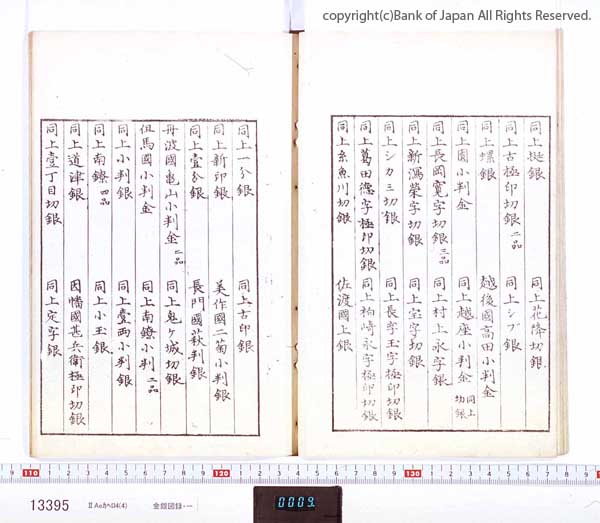 copyright(c)Bank of Japan All Rights Reserved.
同上挺銀 同上花降切銀
同上古極印切銀 二品 同上シブ銀
同上螺銀 越後國高田小判金
同上圓小判金 同上越座小判金 同上切銀
同上長岡寛字切銀 三品 同上村上永字銀
同上新潟榮字切銀 同上宝字切銀
同上シカミ切銀 同上長字玉字極印切銀
同上葛田德字極印切銀 同上柏崎永字極印切銀
同上糸魚川切銀 佐渡國上銀
同上一分銀 同上古印銀
同上新印銀 美作國二菊小判金
同上壹分銀 長門國萩判銀
丹波國亀山小判金 二品 同上鬼ケ城切銀
但馬國小判金 同上南鐐小判 二品
同上小判銀 同上壹两小判銀
同上南鐐 四品 同上小玉銀
同上道津銀 因幡國甚兵衛極印切銀
同上壹丁目切銀 同上定字銀
110 120 130
13395 ⅡAeカヘ04(4) 金銀図録-一 0009